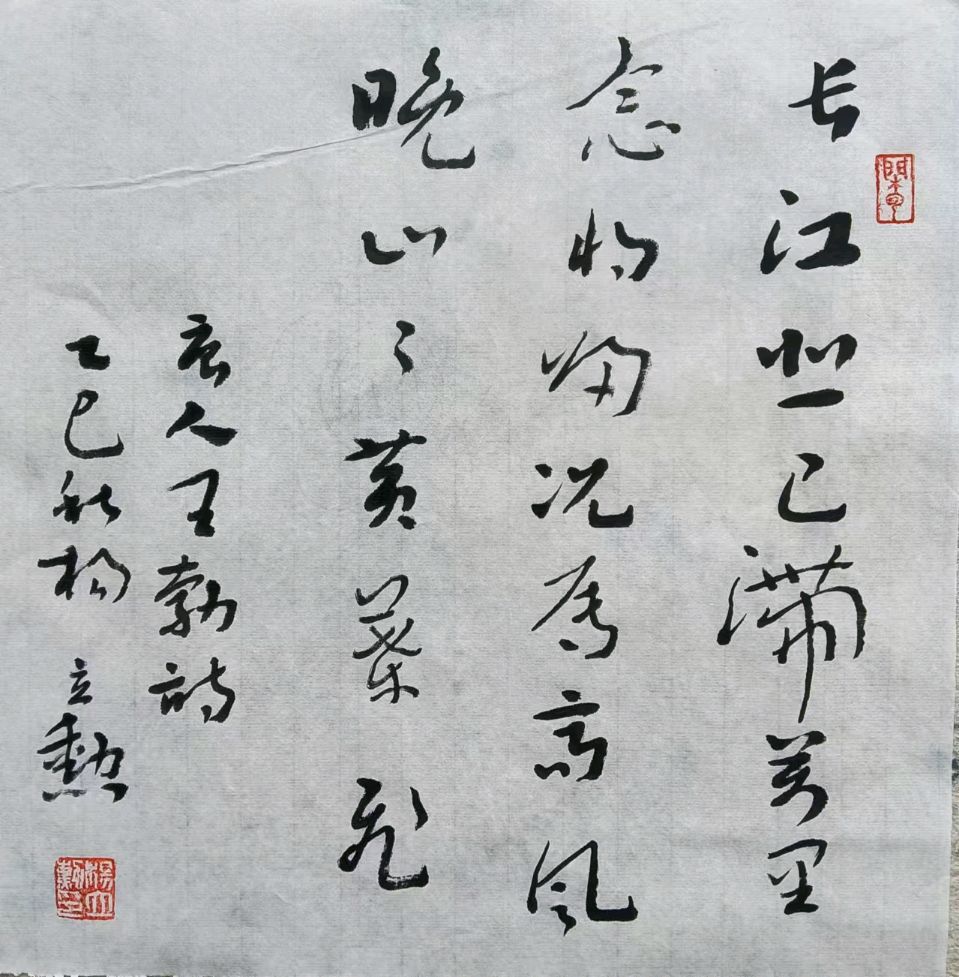 长江悲已滞万里
念将归况属高风
晚山々黄叶飞
唐人王勃诗
乙巳秋杨立勲
杨立勲印